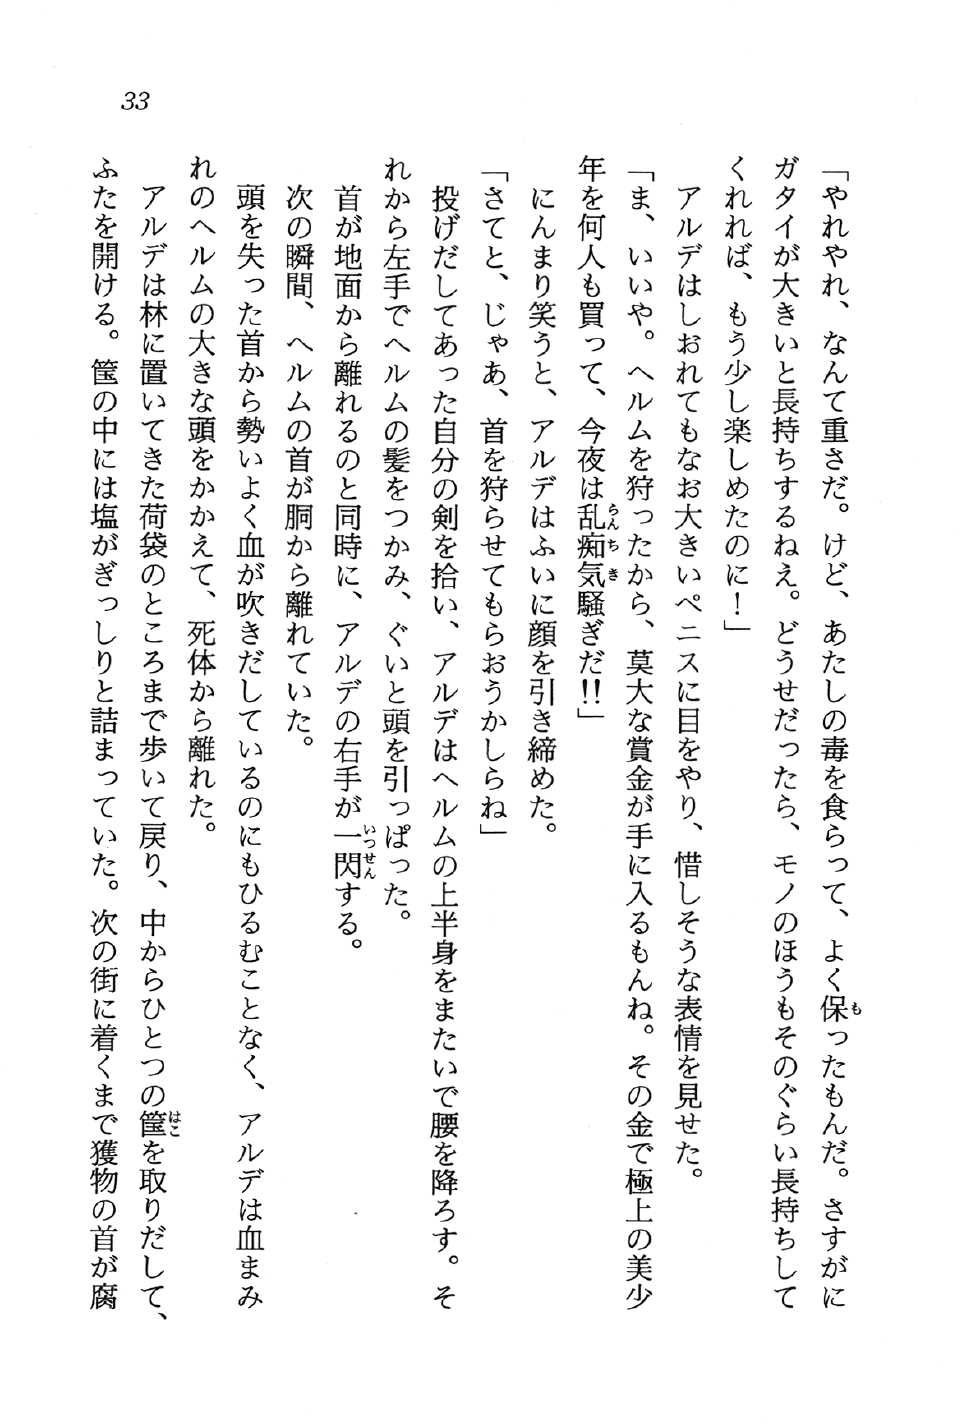 33
「やれやれ、なんて重さだ。けど、あたしの毒を食らって、よく保ったもんだ。さすがに
ガタイが大きいと長持ちするねえ。どうせだったら、モノのほうもそのぐらい長持ちして
くれれば、もう少し楽しめたのに！」
アルデはしおれてもなお大きいペニスに目をやり、惜しそうな表情を見せた。
「ま、いいや。ヘルムを狩ったから、莫大な賞金が手に入るもんね。その金で極上の美少
年を何人も買って、今夜は乱痴気騒ぎだ!!」
にんまり笑うと、アルデはふいに顔を引き締めた。
「さてと、じゃあ、首を狩らせてもらおうかしらね」
投げだしてあった自分の剣を拾い、アルデはヘルムの上半身をまたいで腰を降ろす。そ
れから左手でヘルムの髪をつかみ、ぐいと頭を引っぱった。
首が地面から離れるのと同時に、アルデの右手が一閃する。
次の瞬間、ヘルムの首が胴から離れていた。
頭を失った首から勢いよく血が吹きだしているのにもひるむことなく、アルデは血まみ
れのヘルムの大きな頭をかかえて、死体から離れた。
アルデは林に置いてきた荷袋のところまで歩いて戻り、中からひとつの筺を取りだして、
ふたを開ける。筺の中には塩がぎっしりと詰まっていた。次の街に着くまで獲物の首が腐